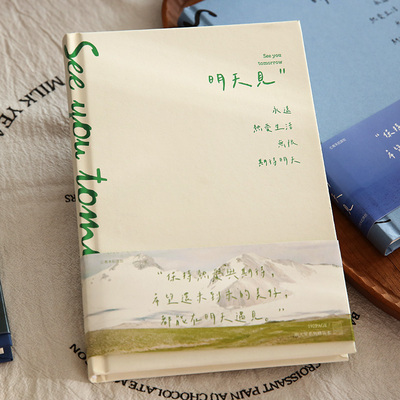 See you
tomorrow
明天見"
永遠
熱愛生活
無限
期待明天
See you tomo
"保持熱愛與期待,
希望還未到來的美好,
都能在明天遇見。"
MILK YEA
CROISSANT PAIN AU CHOCOLATE